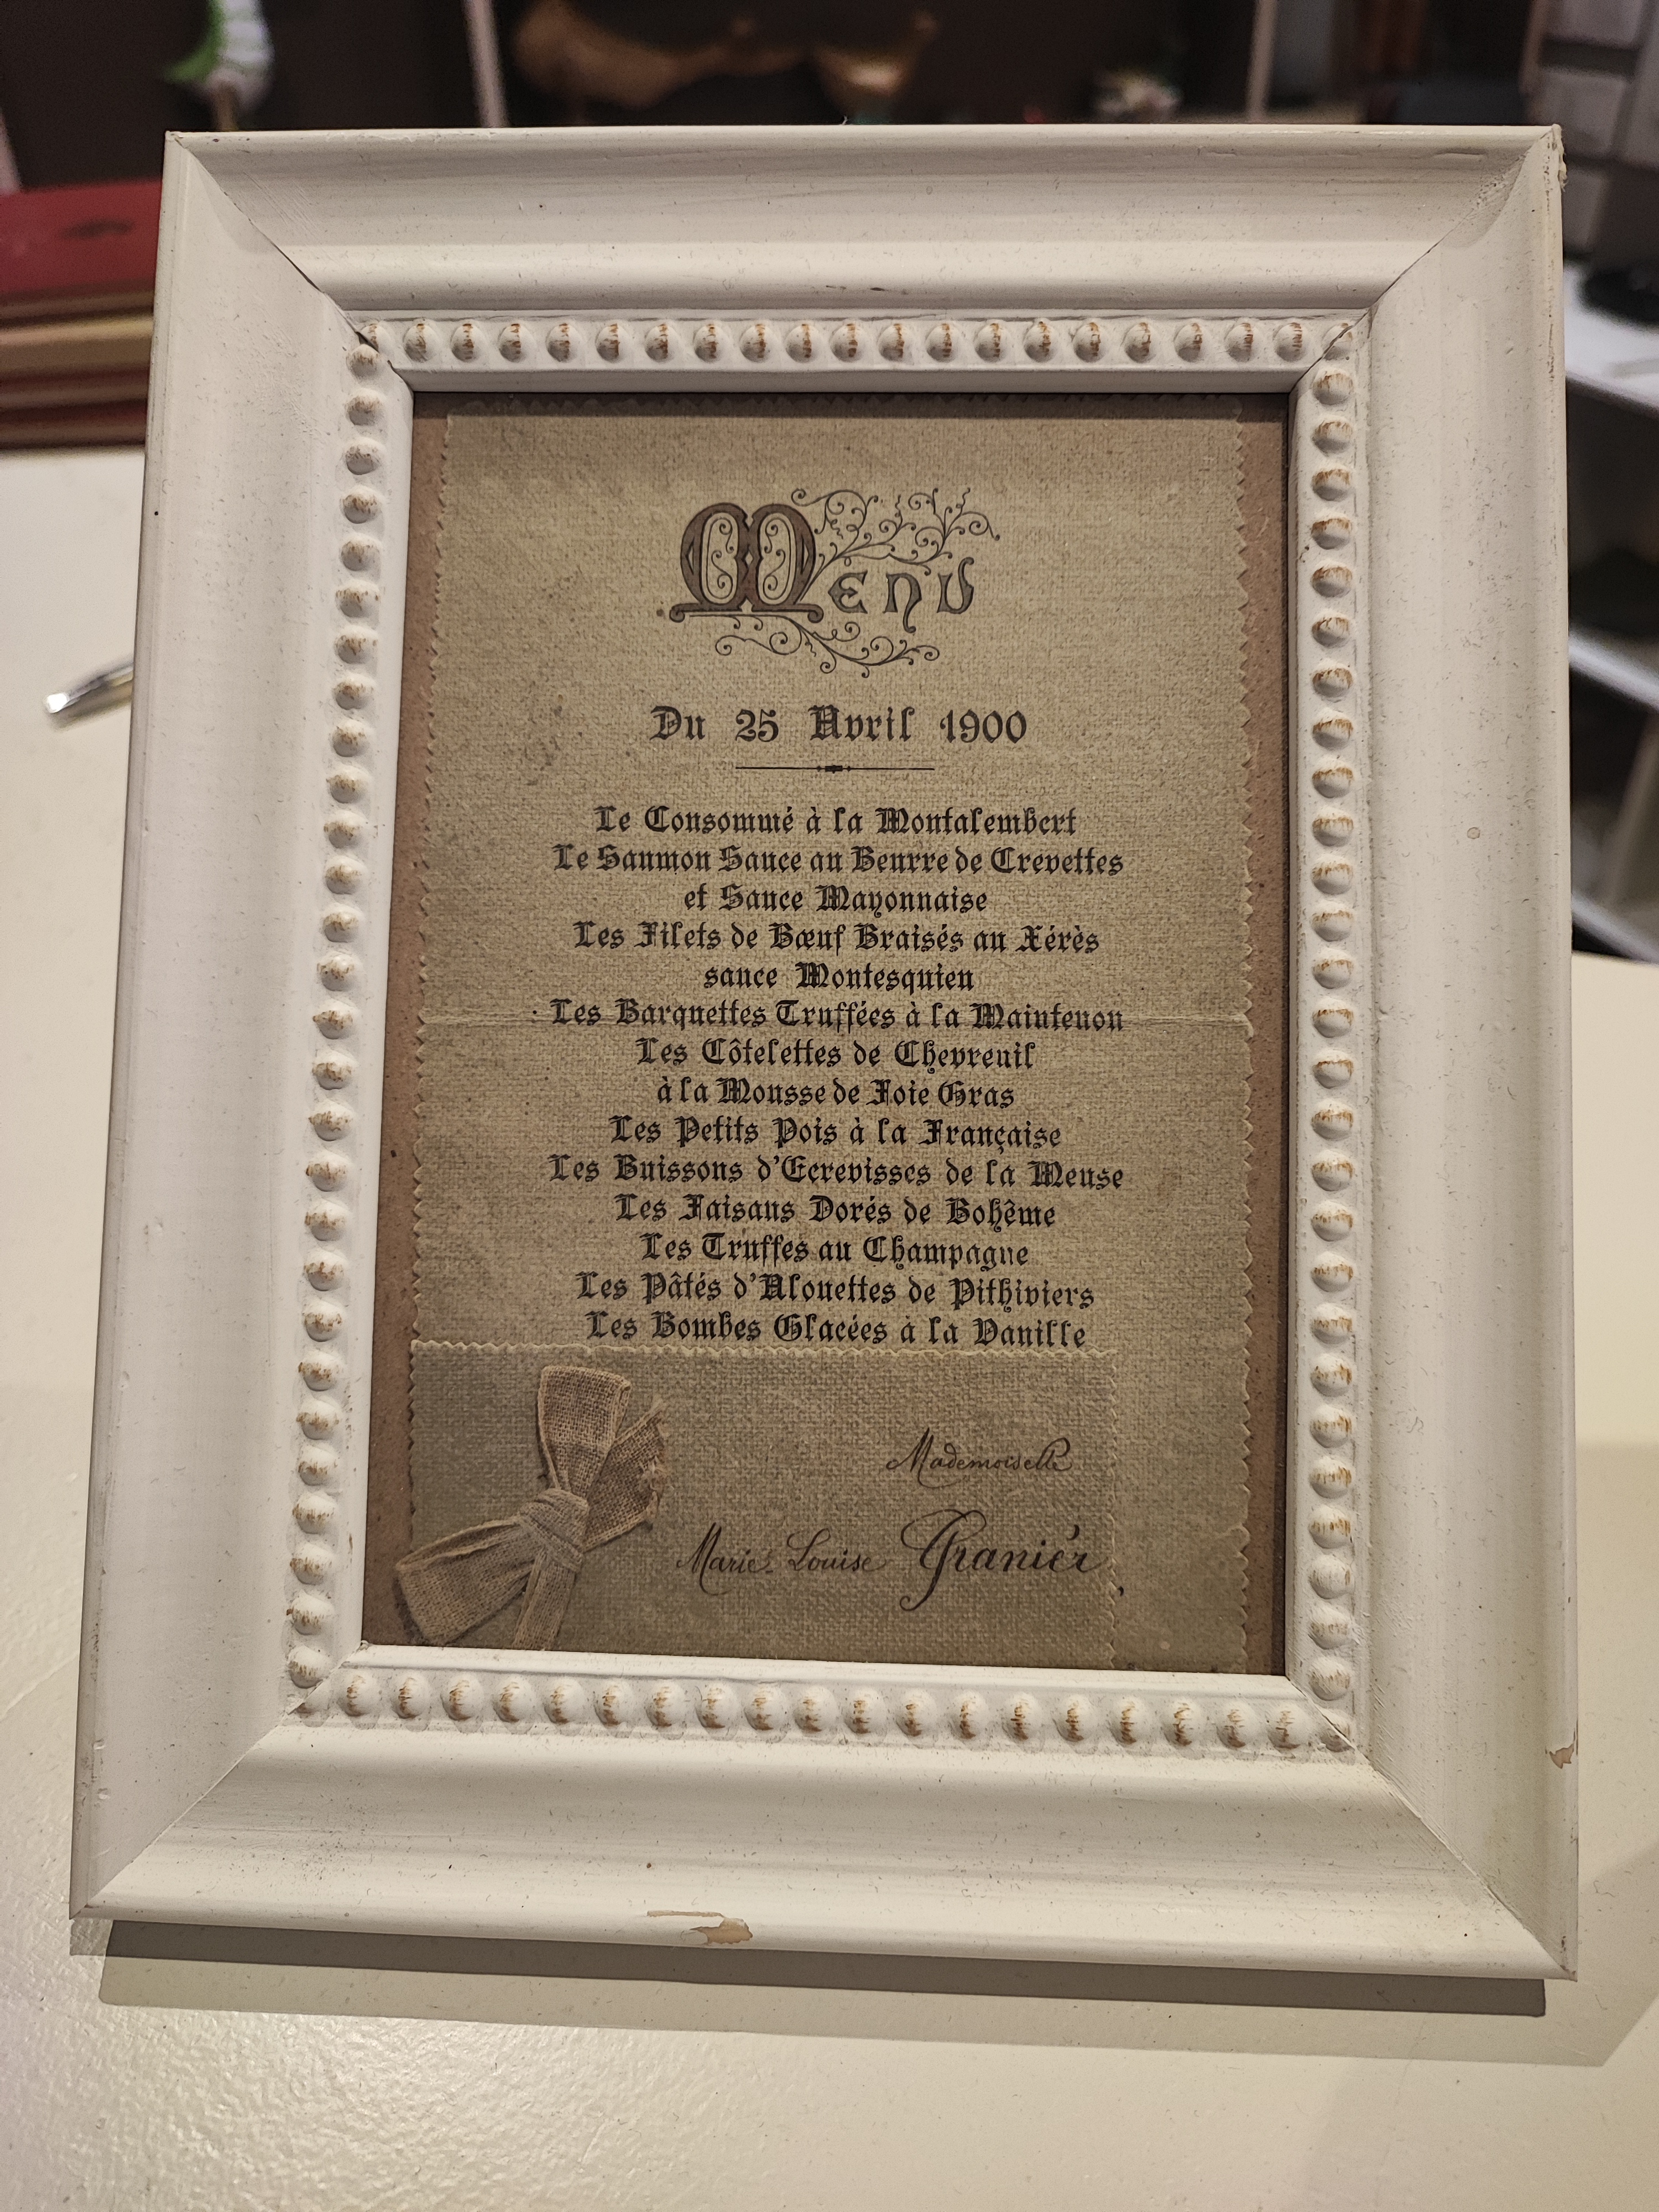 Menu
Du 25 Avril 1900
Le Consommé à la Montalembert
Le Saumon Sauce au Beurre de Crevettes
et Sauce Mayonnaise
Les Filets de Bœuf Braisés au Xérès
sauce Montesquieu
Les Barquettes Truffées à la Maintenon
Les Côtelettes de Chevreuil
à la Mousse de Foie Gras
Les Petits Pois à la Française
Les Buissons d'Ecrevisses de la Meuse
Les Faisans Dorés de Bohême
Les Truffes au Champagne
Les Pâtés d'Alouettes de Pithiviers
Les Bombes Glacées à la Vanille
Mademoiselle
Marie-Louise Granier